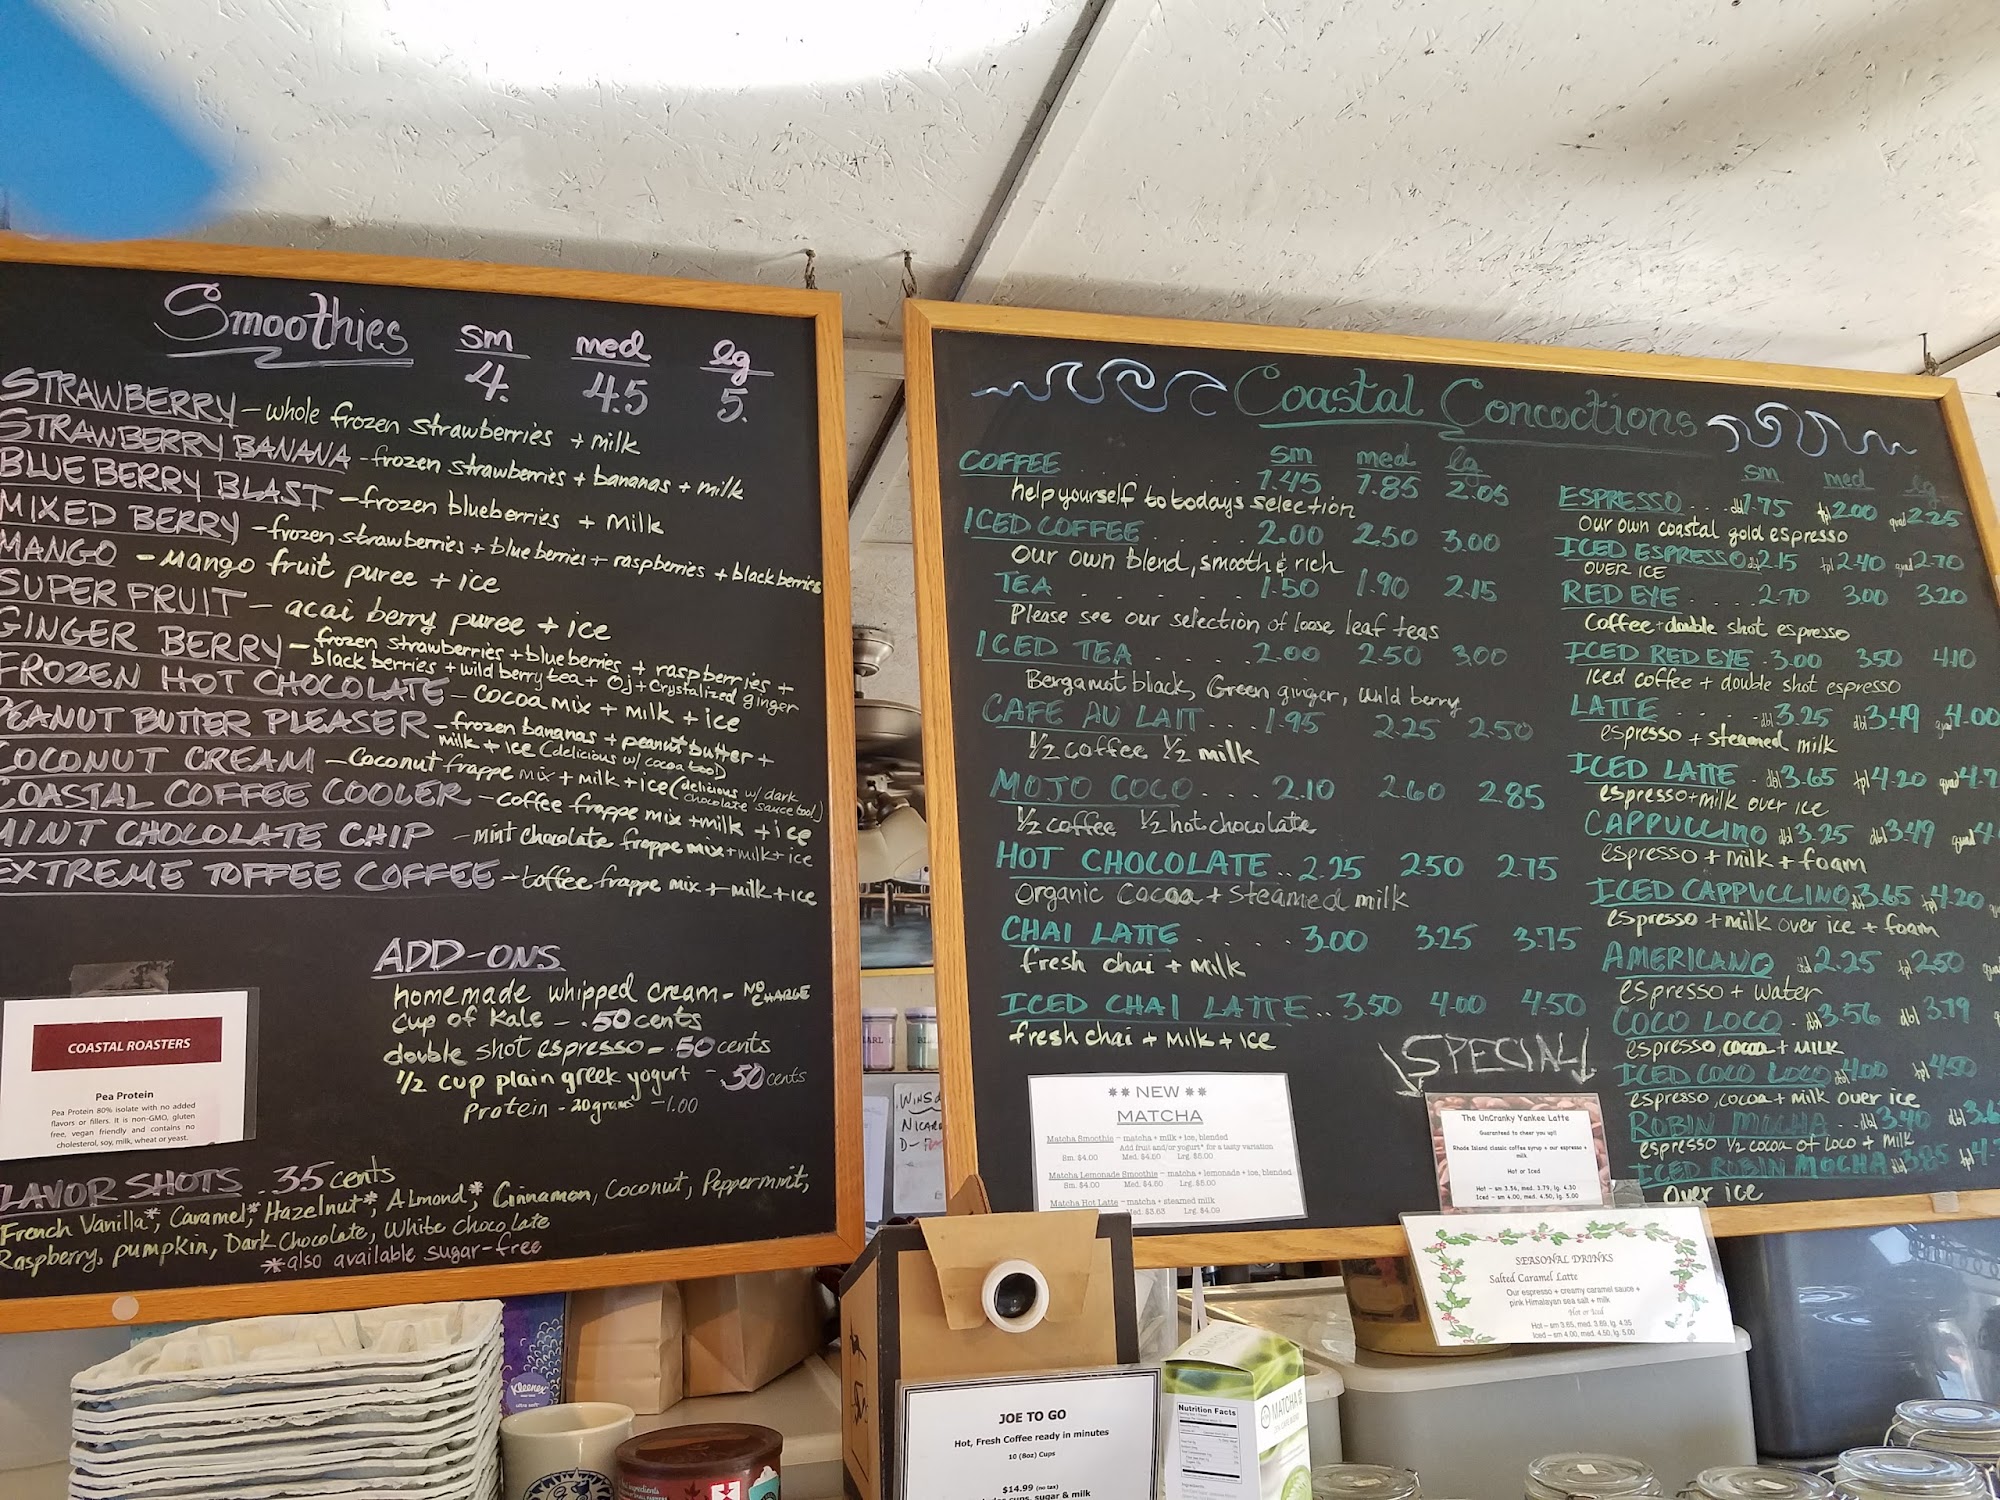 Smoothies sm med lg
4. 4.5 5.
STRAWBERRY - whole frozen strawberries + milk
STRAWBERRY BANANA - frozen strawberries + bananas + milk
BLUEBERRY BLAST - frozen blueberries + milk
MIXED BERRY - frozen strawberries + blueberries + raspberries + blackberries
MANGO - mango fruit puree + ice
SUPER FRUIT - acai berry puree + ice
GINGER BERRY - frozen strawberries + blueberries + raspberries +
black berries + wild berry tea + OJ + crystalized ginger
FROZEN HOT CHOCOLATE - cocoa mix + milk + ice
PEANUT BUTTER PLEASER - frozen bananas + peanut butter +
milk + ice (delicious w/ cocoa too!)
COCONUT CREAM - coconut frappe mix + milk + ice (delicious w/ dark
chocolate sauce too!)
COASTAL COFFEE COOLER - coffee frappe mix + milk + ice
MINT CHOCOLATE CHIP - mint chocolate frappe mix + milk + ice
EXTREME TOFFEE COFFEE - toffee frappe mix + milk + ice
ADD-ONS
homemade whipped cream - NO CHARGE
cup of Kale - .50 cents
double shot espresso - .50 cents
1/2 cup plain greek yogurt - .50 cents
Protein - 20 grams - 1.00
COASTAL ROASTERS
Pea Protein
Pea Protein 80% isolate with no added
flavors or fillers. It is non-GMO, gluten
free, vegan friendly and contains no
cholesterol, soy, milk, wheat or yeast.
FLAVOR SHOTS .35 cents
French Vanilla*, Caramel*, Hazelnut*, Almond*, Cinnamon, Coconut, Peppermint,
Raspberry, pumpkin, Dark Chocolate, White Chocolate
*also available sugar-free
Coastal Concoctions
sm med lg
COFFEE . . . . 1.45 1.85 2.05
help yourself to todays selection
ICED COFFEE . . . . 2.00 2.50 3.00
Our own blend, smooth & rich
TEA . . . . . . 1.50 1.90 2.15
Please see our selection of loose leaf teas
ICED TEA . . . . 2.00 2.50 3.00
Bergamot black, Green ginger, wild berry
CAFE AU LAIT . . . 1.95 2.25 2.50
1/2 coffee 1/2 milk
MOJO COCO . . . . 2.10 2.60 2.85
1/2 coffee 1/2 hot chocolate
HOT CHOCOLATE . . 2.25 2.50 2.75
Organic Cocoa + steamed milk
CHAI LATTE . . . . 3.00 3.25 3.75
fresh chai + milk
ICED CHAI LATTE . . 3.50 4.00 4.50
fresh chai + milk + ice
sm med lg
ESPRESSO . . dbl 1.75 tpl 2.00 quad 2.25
Our own coastal gold espresso
ICED ESPRESSO dbl 2.15 tpl 2.40 quad 2.70
OVER ICE
RED EYE . . . . 2.70 3.00 3.20
Coffee + double shot espresso
ICED RED EYE . 3.00 3.50 4.10
iced coffee + double shot espresso
LATTE . . . . dbl 3.25 dbl 3.49 quad 4.00
espresso + steamed milk
ICED LATTE . dbl 3.65 tpl 4.20 quad 4.7
espresso + milk over ice
CAPPUCCINO dbl 3.25 dbl 3.49 quad 4.
espresso + milk + foam
ICED CAPPUCCINO dbl 3.65 tpl 4.20
espresso + milk over ice + foam
AMERICANO dbl 2.25 tpl 2.50 quad
espresso + water
COCO LOCO . dbl 3.56 dbl 3.79
espresso, cocoa + milk
ICED COCO LOCO dbl 4.00 tpl 4.50
espresso, cocoa + milk over ice
ROBIN MOCHA . . dbl 3.40 dbl 3.6
espresso 1/2 cocoa of loco + milk
ICED ROBIN MOCHA dbl 3.85 tpl 4.
over ice
SPECIAL
** NEW **
MATCHA
Matcha Smoothie – matcha + milk + ice, blended
Add fruit and/or yogurt* for a tasty variation
Sm. $4.00 Med. $4.50 Lrg. $5.00
Matcha Lemonade Smoothie – matcha + lemonade + ice, blended
Sm. $4.00 Med. $4.50 Lrg. $5.00
Matcha Hot Latte – matcha + steamed milk
Med. $3.63 Lrg. $4.09
The UnCranky Yankee Latte
Guaranteed to cheer you up!!
Rhode Island classic coffee syrup + our espresso +
milk
Hot or Iced
Hot – sm 3.56, med. 3.79, lg. 4.30
Iced – sm 4.00, med. 4.50, lg. 5.00
SEASONAL DRINKS
Salted Caramel Latte
Our espresso + creamy caramel sauce +
pink Himalayan sea salt + milk
Hot or Iced
Hot – sm 3.65, med. 3.89, lg. 4.35
Iced – sm 4.00, med. 4.50, lg. 5.00
JOE TO GO
Hot, Fresh Coffee ready in minutes
10 (8oz) Cups
$14.99 (no tax)
cups, sugar & milk
Kleenex
ultra soft
Nutrition Facts
MATCHA